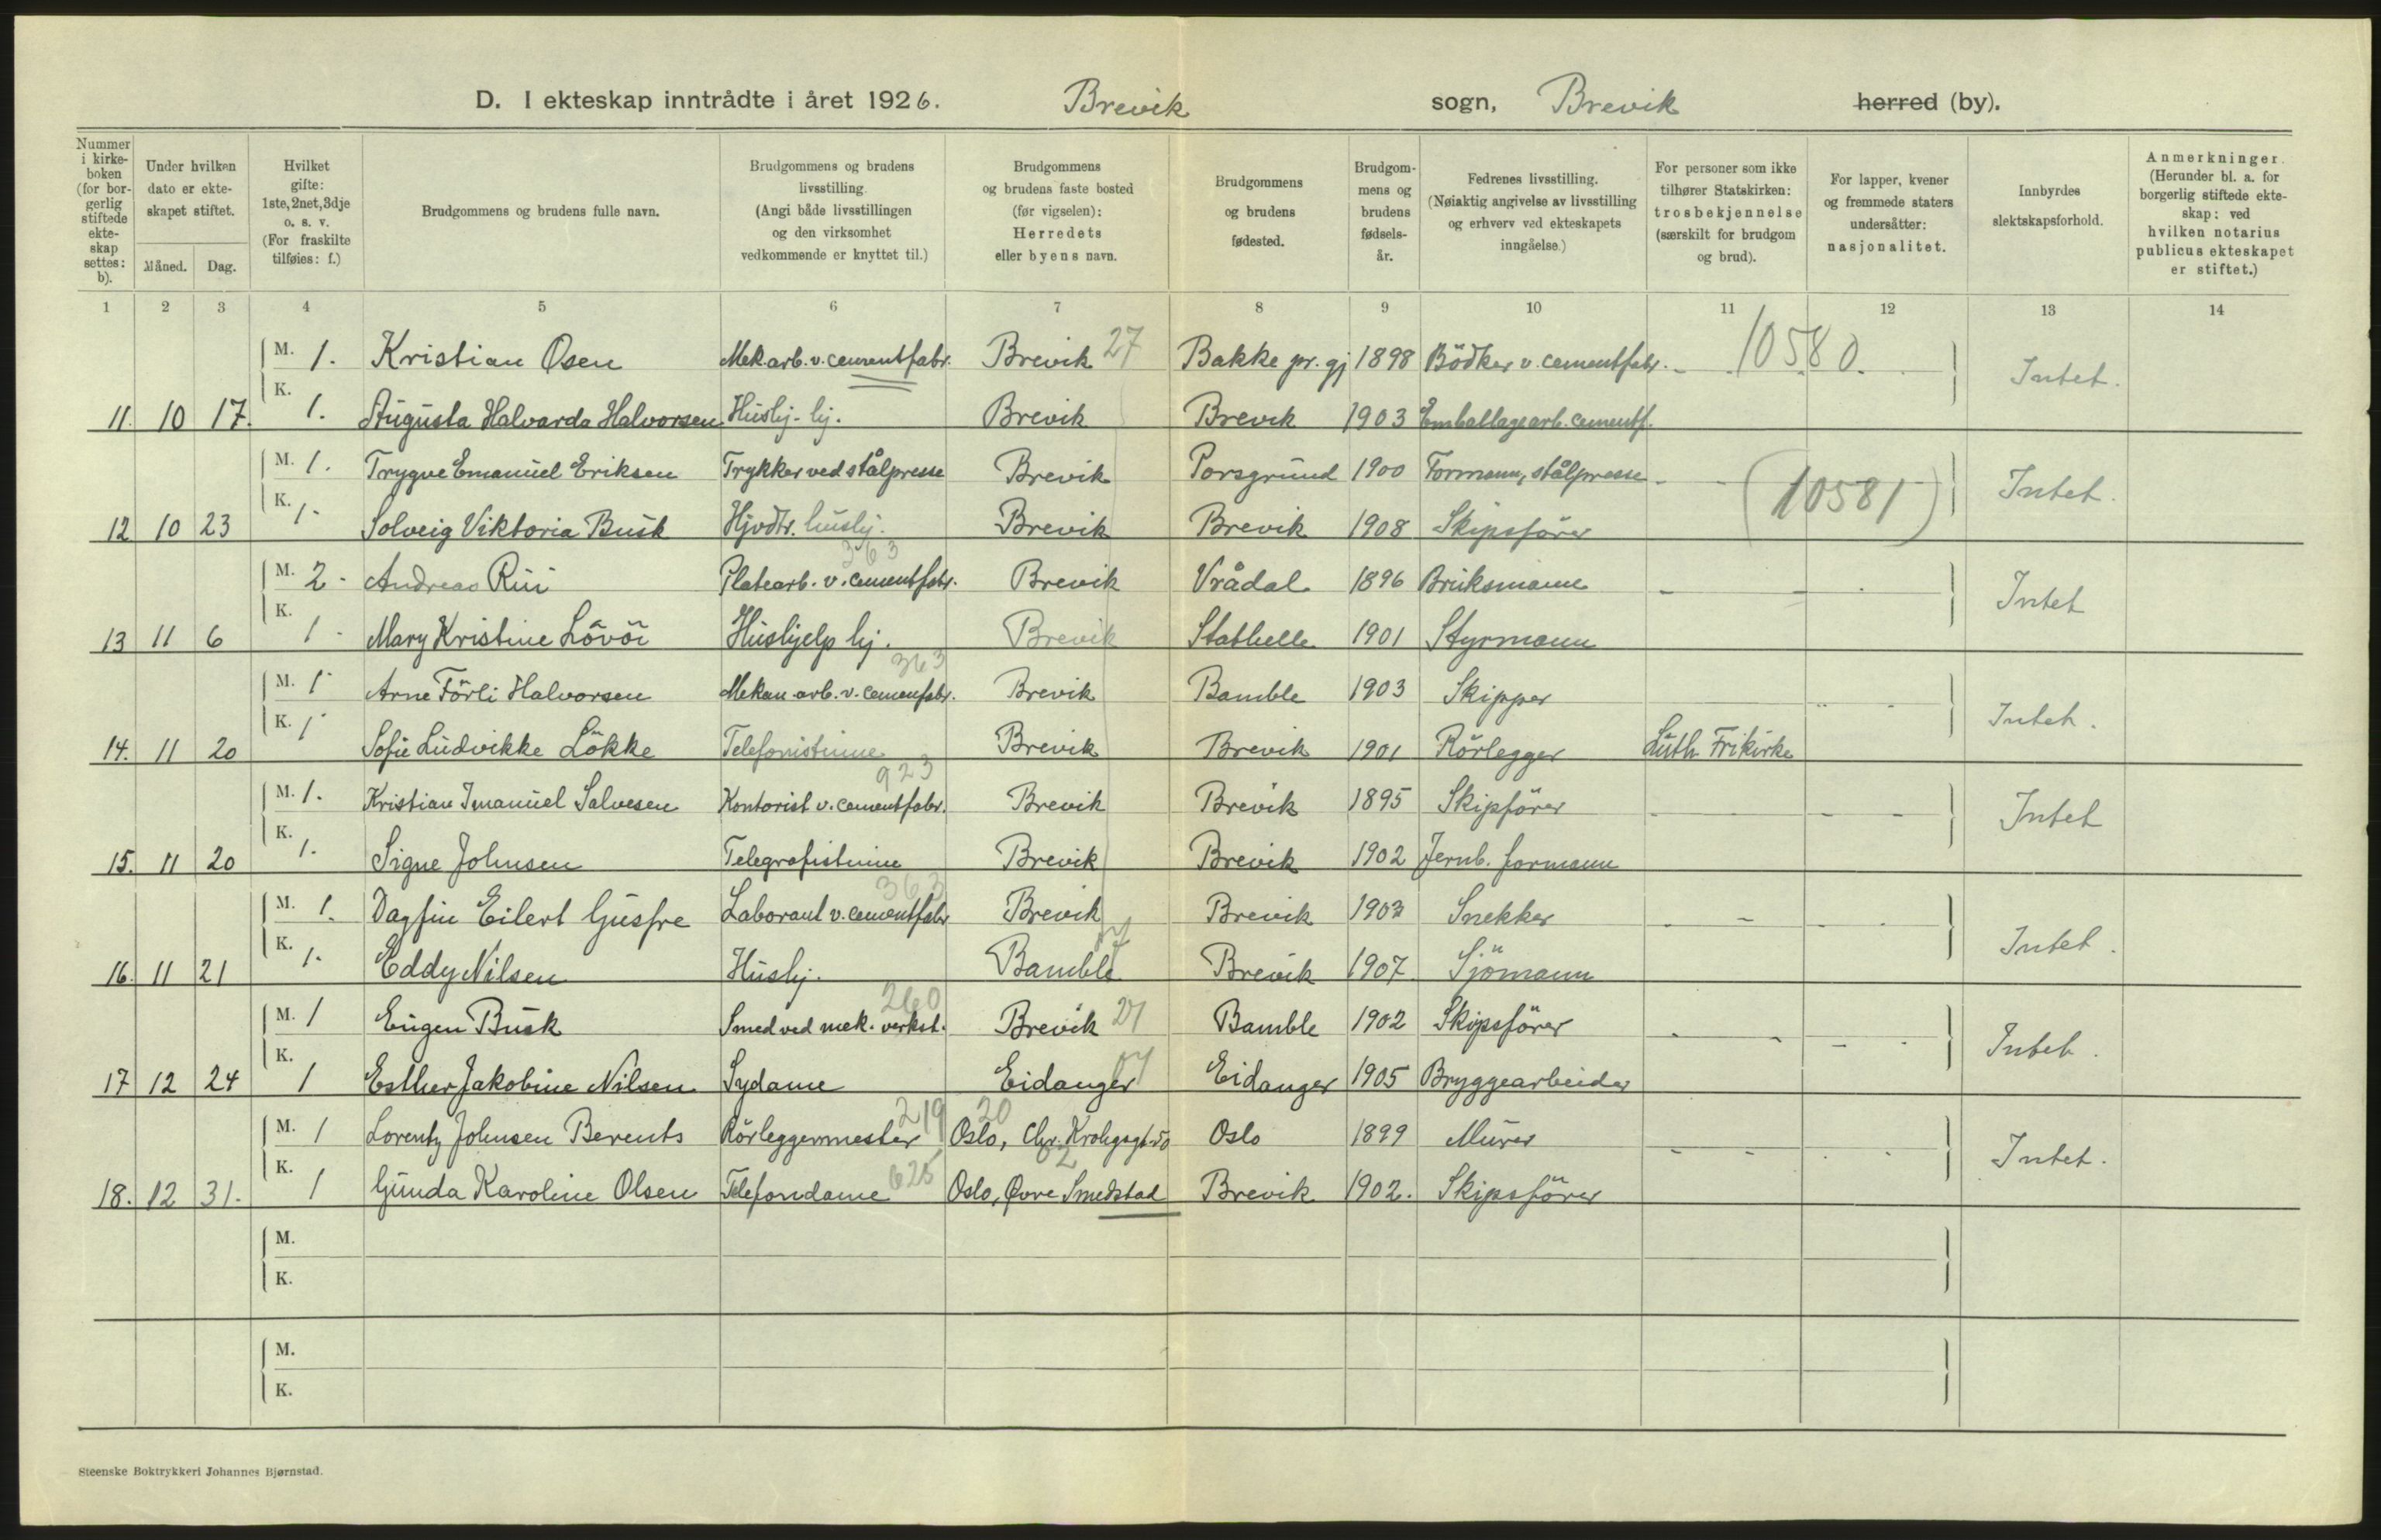 D. I ekteskap inntrådte i året 1926. Brevik sogn, Brevik herred (by).
Nummer i kirke-boken (for bor-gerlig stiftede ekte-skap settes: b).
Under hvilken dato er ekte-skapet stiftet.
Måned. Dag.
Hvilket gifte: 1ste, 2net, 3dje o. s. v. (For fraskilte tilføies: f.)
Brudgommens og brudens fulle navn.
Brudgommens og brudens livsstilling. (Angi både livsstillingen og den virksomhet vedkommende er knyttet til.)
Brudgommens og brudens faste bosted (før vigselen): Herredets eller byens navn.
Brudgommens og brudens fødested.
Brudgom-mens og brudens fødsels-år.
Fedrenes livsstilling. (Nøiaktig angivelse av livsstilling og erhverv ved ekteskapets inngåelse.)
For personer som ikke tilhører Statskirken: trosbekjennelse (særskilt for brudgom og brud).
For lapper, kvener og fremmede staters undersåtter: nasjonalitet.
Innbyrdes slektskapsforhold.
Anmerkninger. (Herunder bl. a. for borgerlig stiftede ekte-skap: ved hvilken notarius publicus ekteskapet er stiftet.)
1 2 3 4 5 6 7 8 9 10 11 12 13 14
M. 1. Kristian Osen Mek.arb. v. cementfabr. Brevik 27 Bakke pr. gj 1898 Bödker v. cementfabr. - 10580 Intet.
11. 10 17. K. 1. Augusta Halvarda Halvorsen Huslj. lj. Brevik Brevik 1903 Emballagearb. cementf.
M. 1. Trygve Emanuel Eriksen Trykker ved stålpresse Brevik Porsgrund 1900 Formann, stålpresse - (10581) Intet.
12 10 23 K. 1. Solveig Viktoria Busk Hjvdtr. huslj. Brevik Brevik 1908 Skipsförer
363
M. 2. Andreas Rui Platearb. v. cementfabr. Brevik Vrådal 1896 Bruksmann - - - Intet
13 11 6 K. 1. Mary Kristine Lövöi Hushjelp lj. Brevik Stathelle 1901 Styrmann
363
M. 1 Arne Förli Halvorsen Mekan arb. v. cemenfabr. Brevik Bamble 1903 Skipper Intet.
14. 11 20 K. 1 Sofie Ludvikke Lökke Telefonistinne Brevik Brevik 1901 Rörlegger Luth Frikirke
923
M. 1. Kristian Imanuel Salvesen Kontorist v. cementfabr. Brevik Brevik 1895 Skipförer - - - Intet
15. 11 20 K. 1. Signe Johnsen Telegrafistinne Brevik Brevik 1902 Jernb. formann
363
M. 1. Dagfin Eilert Gusfre Laborant v. cementfabr Brevik Brevik 1903 Snekker - - - Intet.
16. 11 21 K. 1. Eddy Nilsen Huslj. Bamble 07 Brevik 1907 Sjömann
260
M. 1 Eugen Busk Smed ved mek. verkst. Brevik 27 Bamble 1902 Skipsförer - - - Intet.
17 12 24 K. 1 Esther Jakobine Nilsen Sydame Eidanger 07 Eidanger 1905 Bryggearbeider
219 20
M. 1 Lorentz Johnsen Berents Rörleggermester Oslo, Chr. Krohgsgt. 50 Oslo 1899 Murer - - - Intet.
18. 12 31. K. 1 Gunda Karoline Olsen Telefondame 625 Oslo, Øvre Smedstad 02 Brevik 1902. Skipsförer
M.
K.
M.
K.
Steenske Boktrykkeri Johannes Bjørnstad.